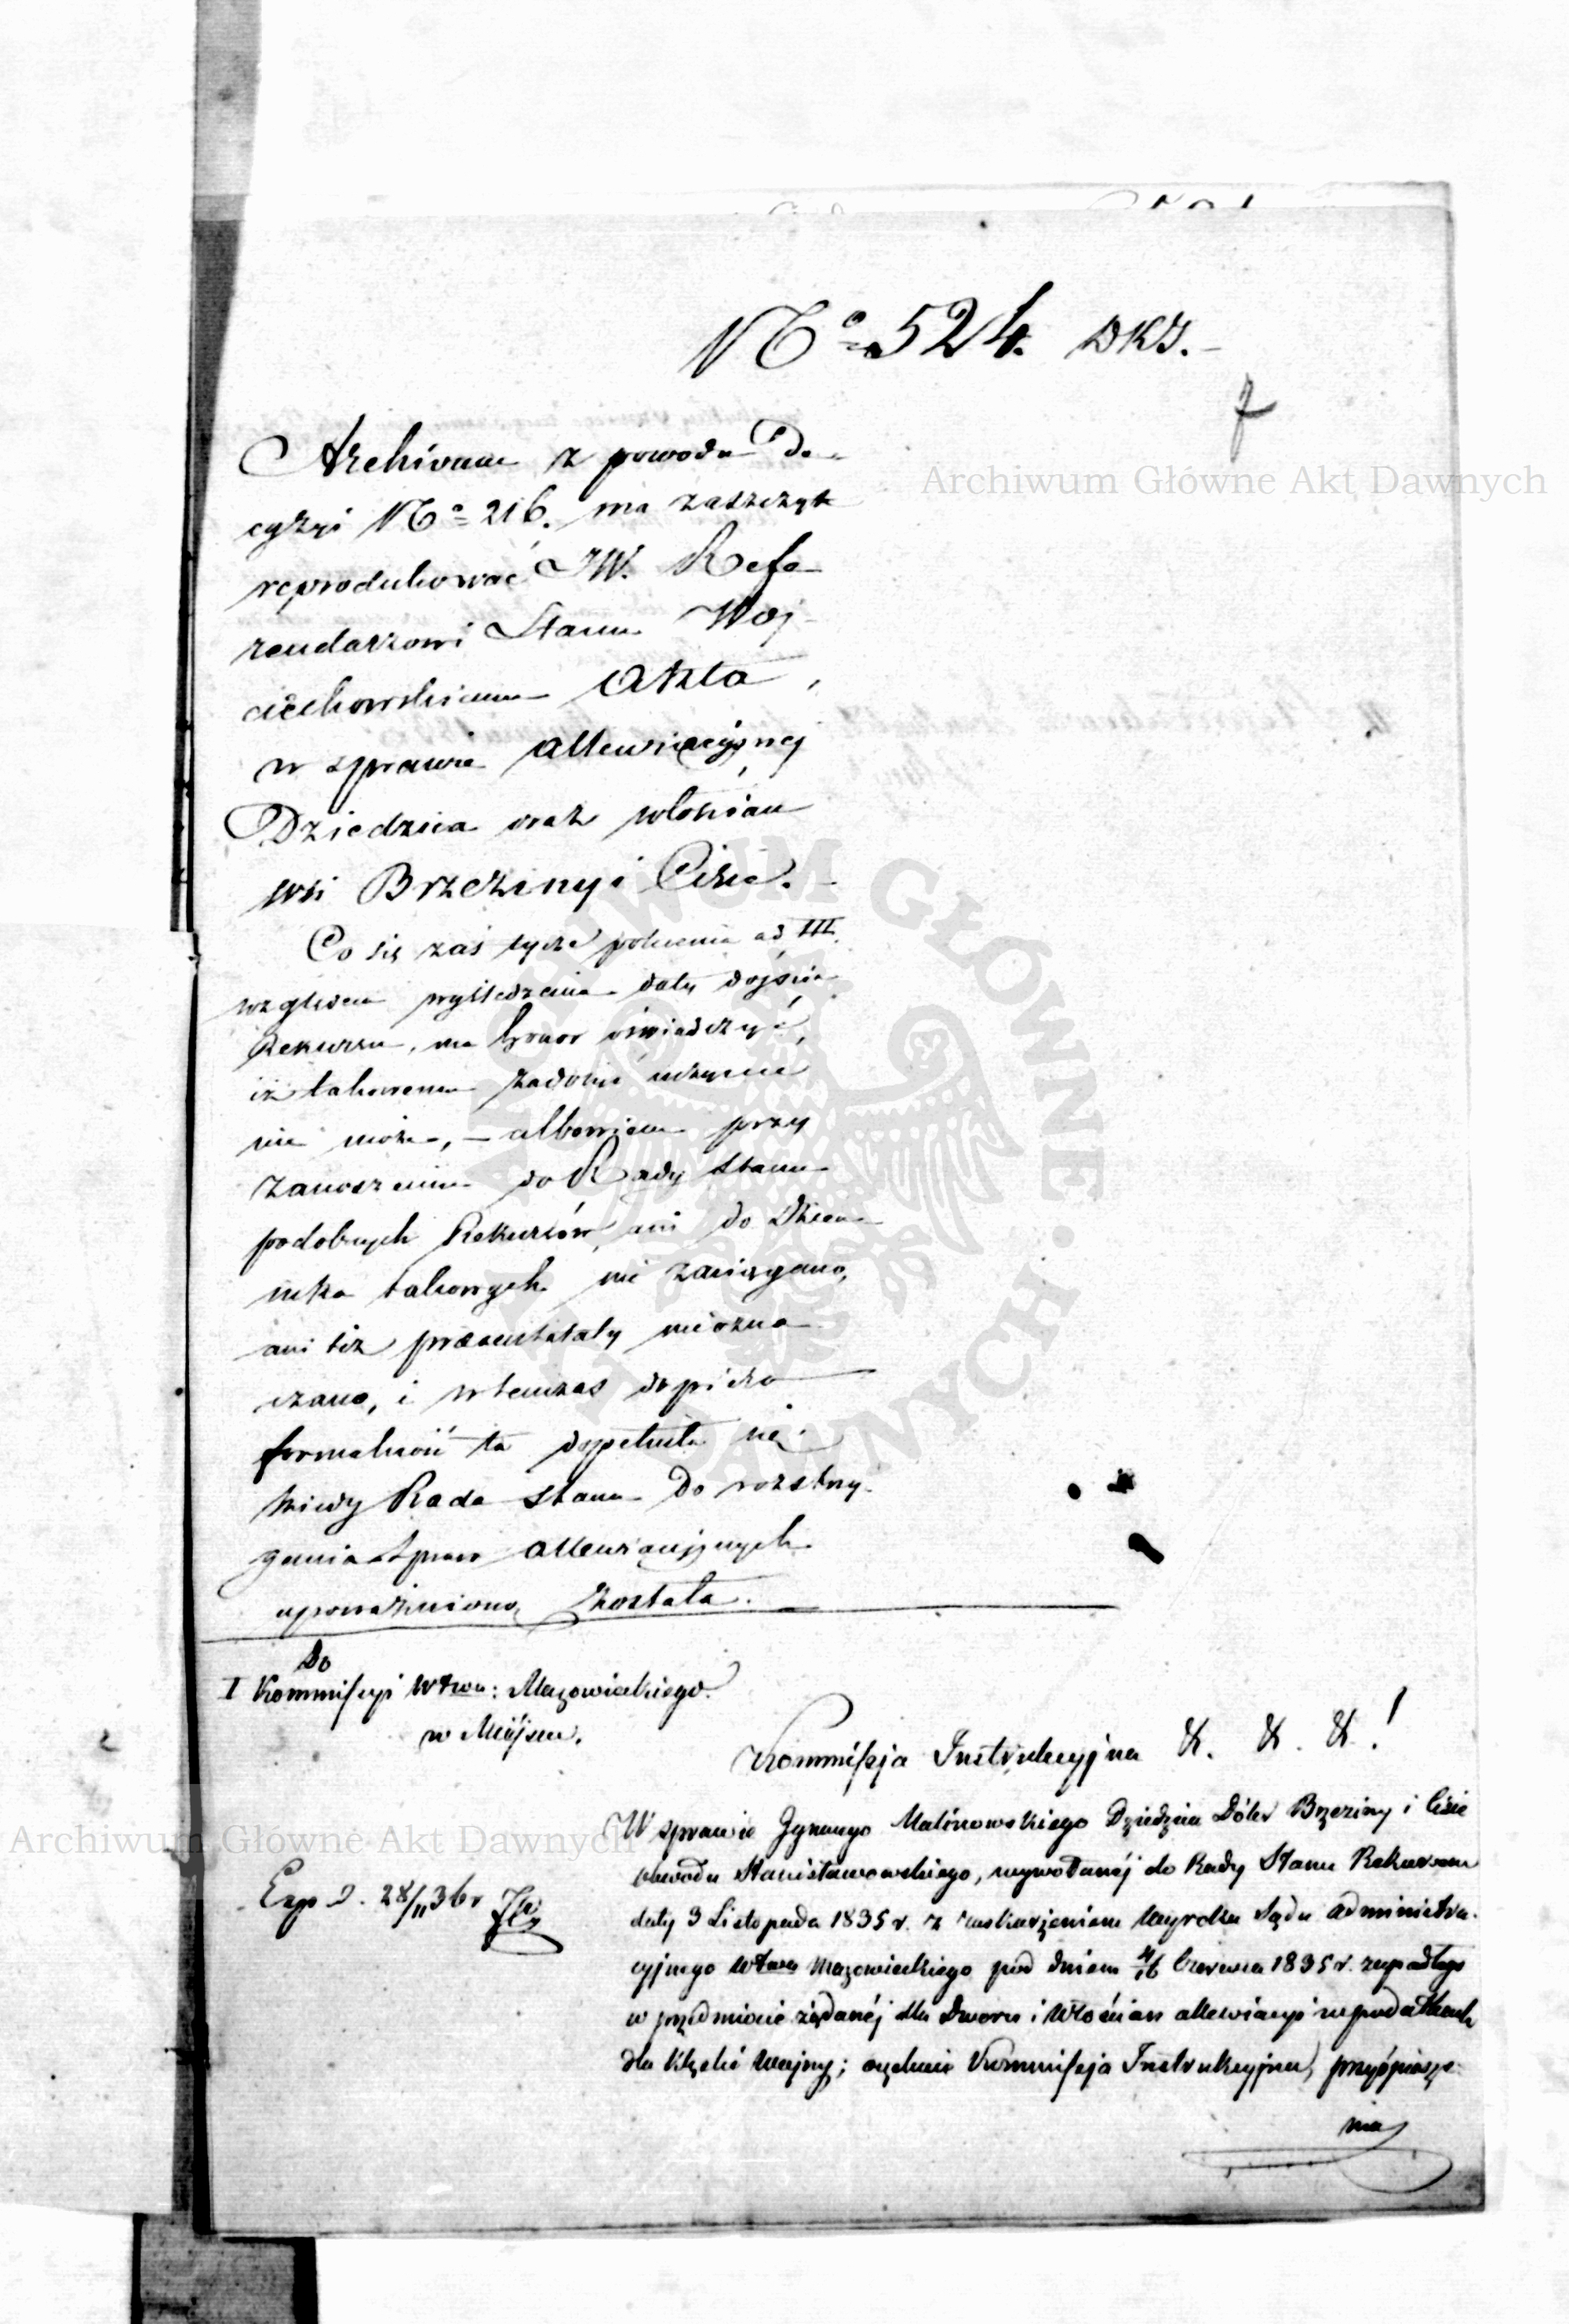 Nº 524. DKJ.
7
Archiwum Główne Akt Dawnych
Archivum z powodu De-
cyzyi Nº 216. ma zaszczyt
reprodukować JW. Refe-
rendarzowi Stanu Woj-
ciechowskiemu Akta,
w sprawie allewiacyjnej
Dziedzica oraz włościan
wsi Brzeziny i Cisie.
Co się zaś tycze polecenia ad III.
względem wyśledzenia daty dojścia
Rekursu, ma honor oświadczyć,
iż takowemu zadosyć uczynić
nie może, – albowiem przy
zanoszeniu do Rady Stanu
podobnych Rekursów, ani do Dzien-
nika takowych nie zaciągano,
ani też præsentataty nieozna-
czano, i wtenczas dopiéro
formalność ta dopełniła się
kiedy Rada Stanu do rozstrzy-
gania Spraw allewiacyjnych
upoważnioną została.
Do
I Kommissyi Wdztwa: Mazowieckiego.
w Miejscu.
Kommissja Instrukcyjna &. &. &!
W sprawie Ignacego Malinowskiego Dziedzica Dóbr Brzeziny i Cisie
obwodu Stanisławowskiego, wywołanéj do Rady Stanu Rekursem
daty 3 Listopada 1835 r. z zaskarżeniem Wyroku Sądu Administra-
cyjnego Wdztwa Mazowieckiego pod dniem 4/16 Czerwca 1835 r. zapadłego
w przedmiocie żądanéj dla Dworu i Włościan allewiacyi w podatkach
dla klęski Wojny; orzeknie Kommissja Instrukcyjna, przyśpiesze-
nia
Archiwum Głowne Akt Dawnych
Exp D. 28/11 36 r
ARCHIWUM GŁÓWNE AKT DAWNYCH